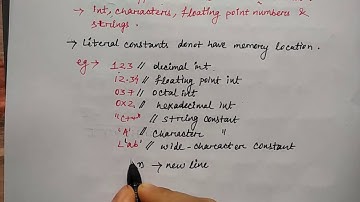 → Int, characters, floating point numbers &
strings.
→ Literal constants donot have memory location.
eg → 123 // decimal int
12.34 // floating point int
037 // octal int
0X2 // hexadecimal int
"C++" // string constant
'A' // character "
L'ab' // wide-character constant
→ new line